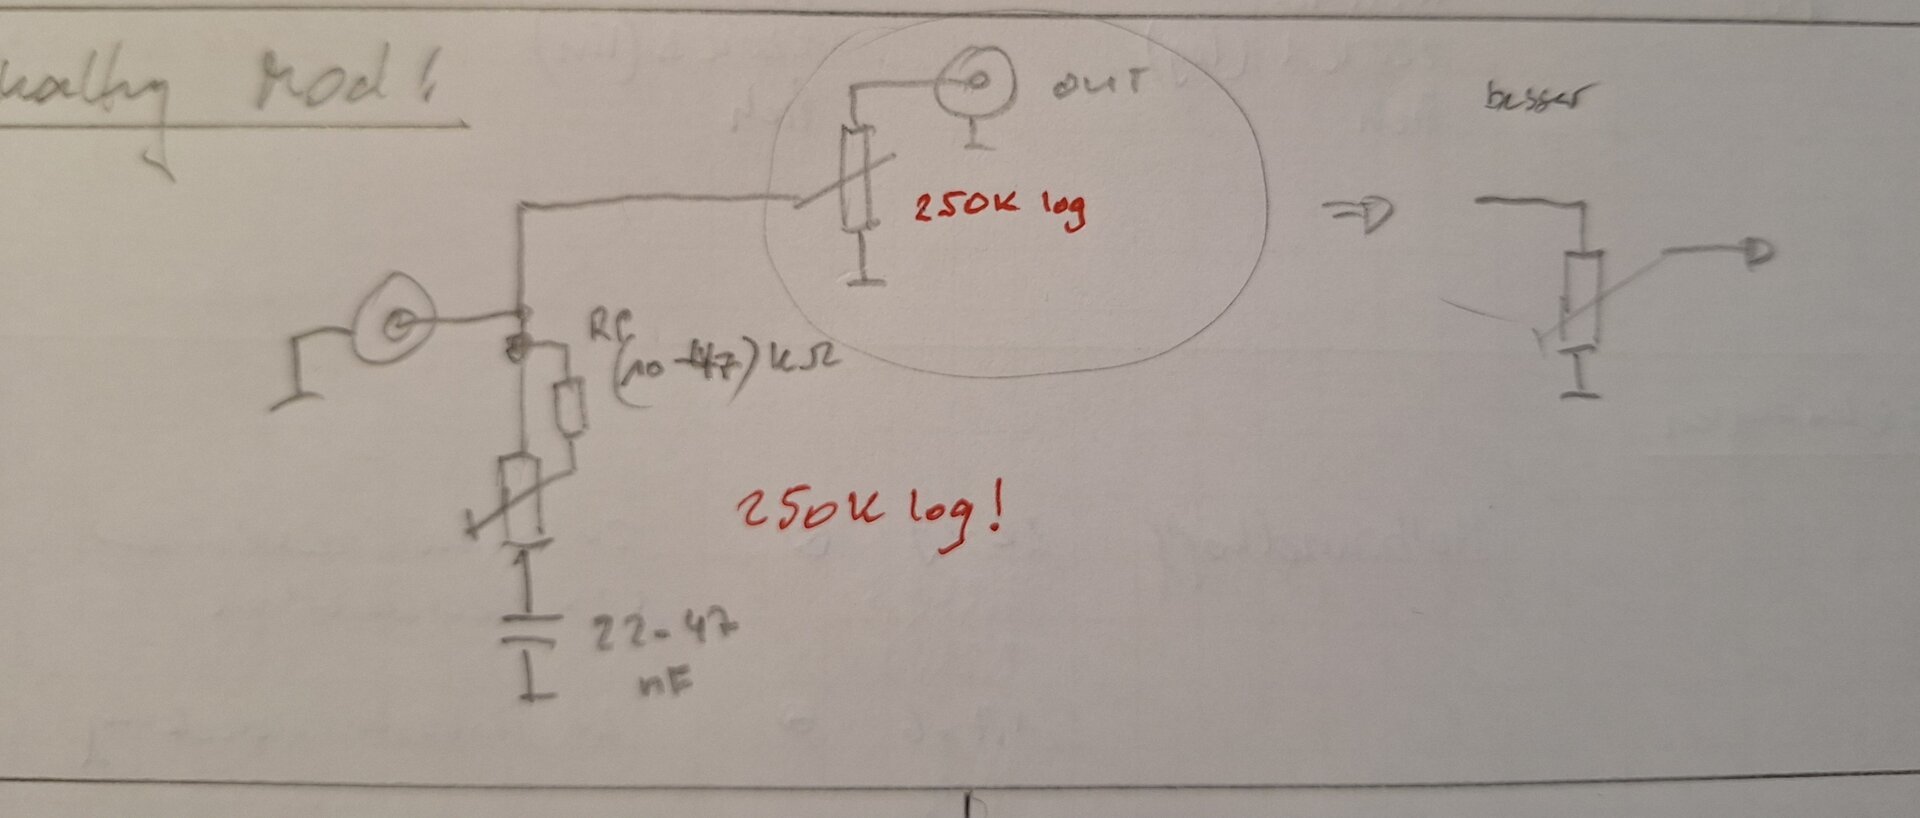 Mod!
OUT
besser
250K log
(10-47) kΩ
250K log!
22-47
nF